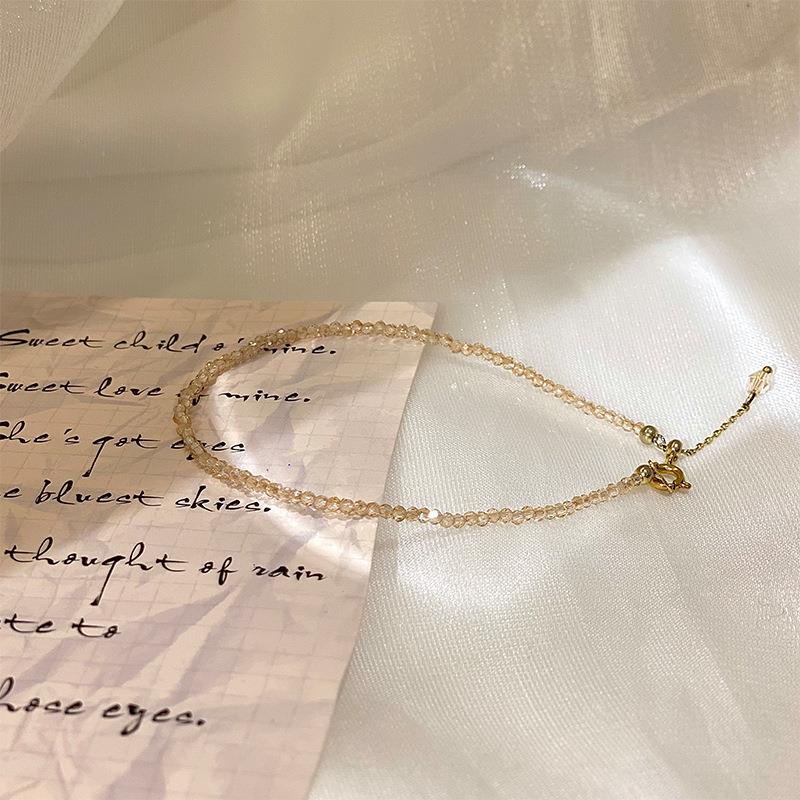 Sweet child o' mine.
Sweet love of mine.
She's got eyes
e bluest skies.
thought of rain
te to
hose eyes.